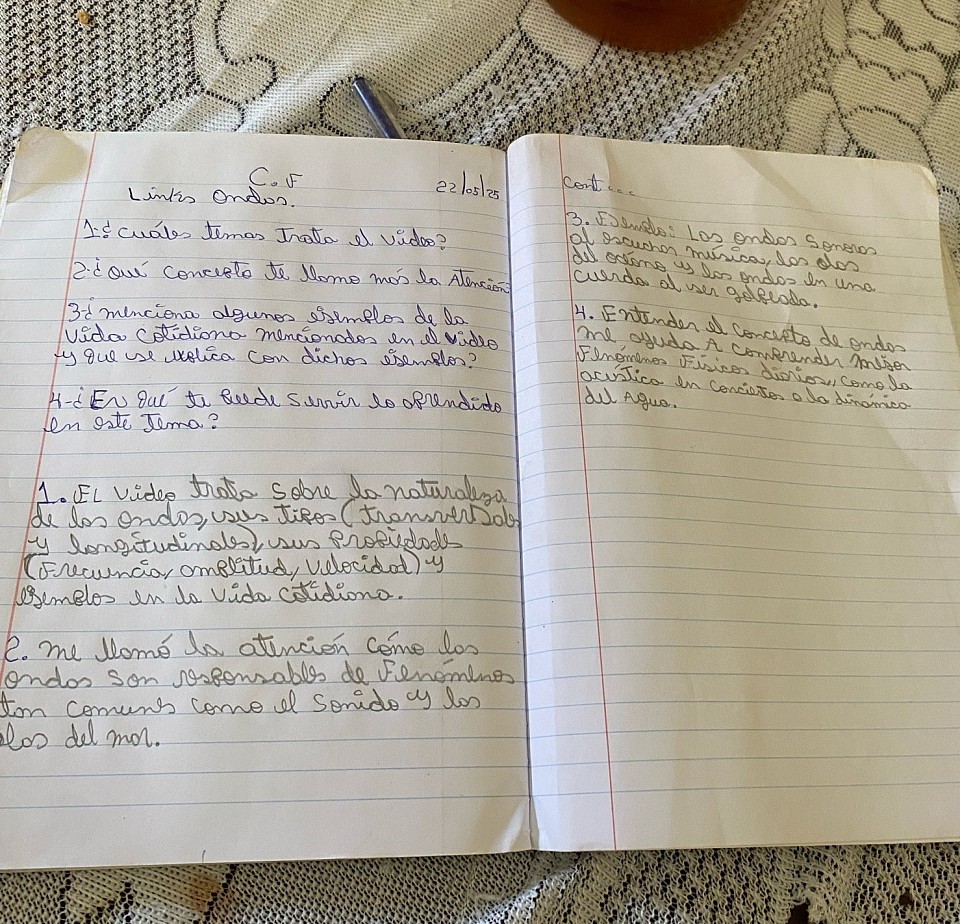 C.F
22/05/25
Links Ondas.
1-¿cuáles temas trata el video?
2-¿Qué concepto te llamo más la Atención?
3-¿menciona algunos ejemplos de la
vida cotidiana mencionados en el video
y que se explica con dichos ejemplos?
4-¿En qué te puede servir lo aprendido
en este tema?
1. EL video trata sobre la naturaleza
de las ondas, sus tipos (transversales
y longitudinales), sus propiedades
(Frecuencia, amplitud, velocidad) y
ejemplos en la vida cotidiana.
2. me llamó la atención cómo las
ondas son responsables de Fenómenos
tan comunes como el sonido y las
olas del mar.
Cont...
3. Ejemplo: Las ondas sonoras
al escuchar música, las olas
del océano y las ondas en una
cuerda al ser golpeada.
4. Entender el concepto de ondas
me ayuda A comprender mejor
Fenómenos Físicos diarios, como la
acústica en conciertos o la dinámica
del Agua.